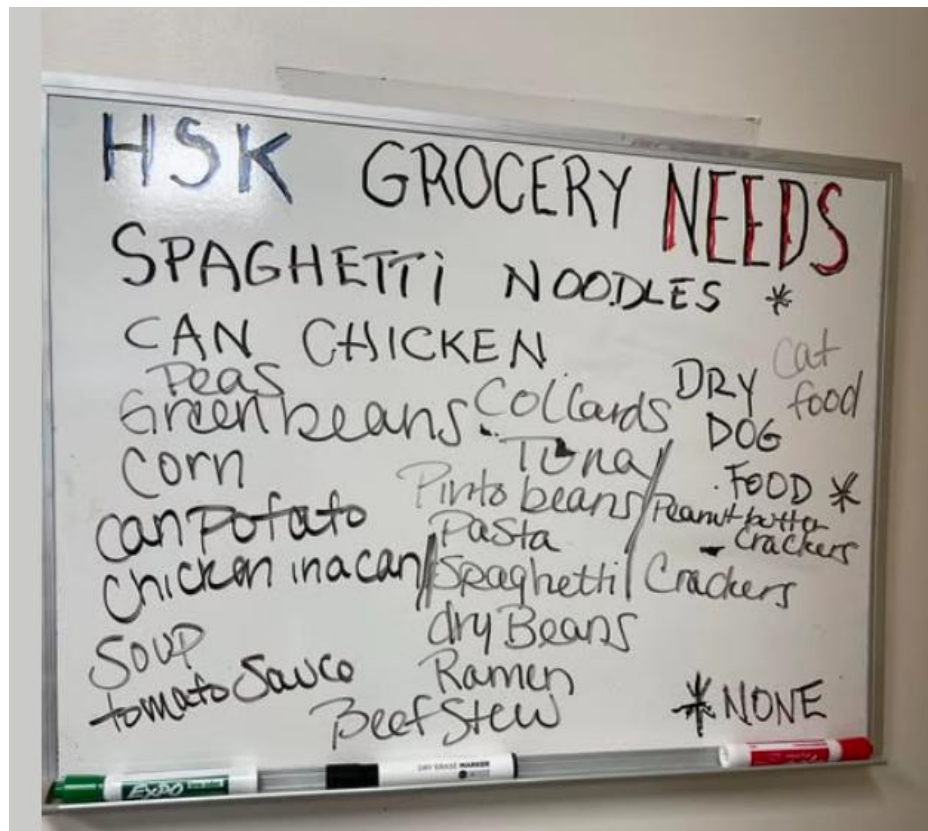 HSK GROCERY NEEDS
SPAGHETTi NOODLES *
CAN CHICKEN
Peas
Green beans
Corn
can potato
Chicken in a can
Soup
tomato Sauce
Collards
Tuna
Pinto beans
Pasta
Spaghetti
dry Beans
Ramen
Beef Stew
DRY
DOG
FOOD *
Cat
food
Peanut butter
- crackers
Crackers
* NONE
EXPO
DRY ERASE MARKER